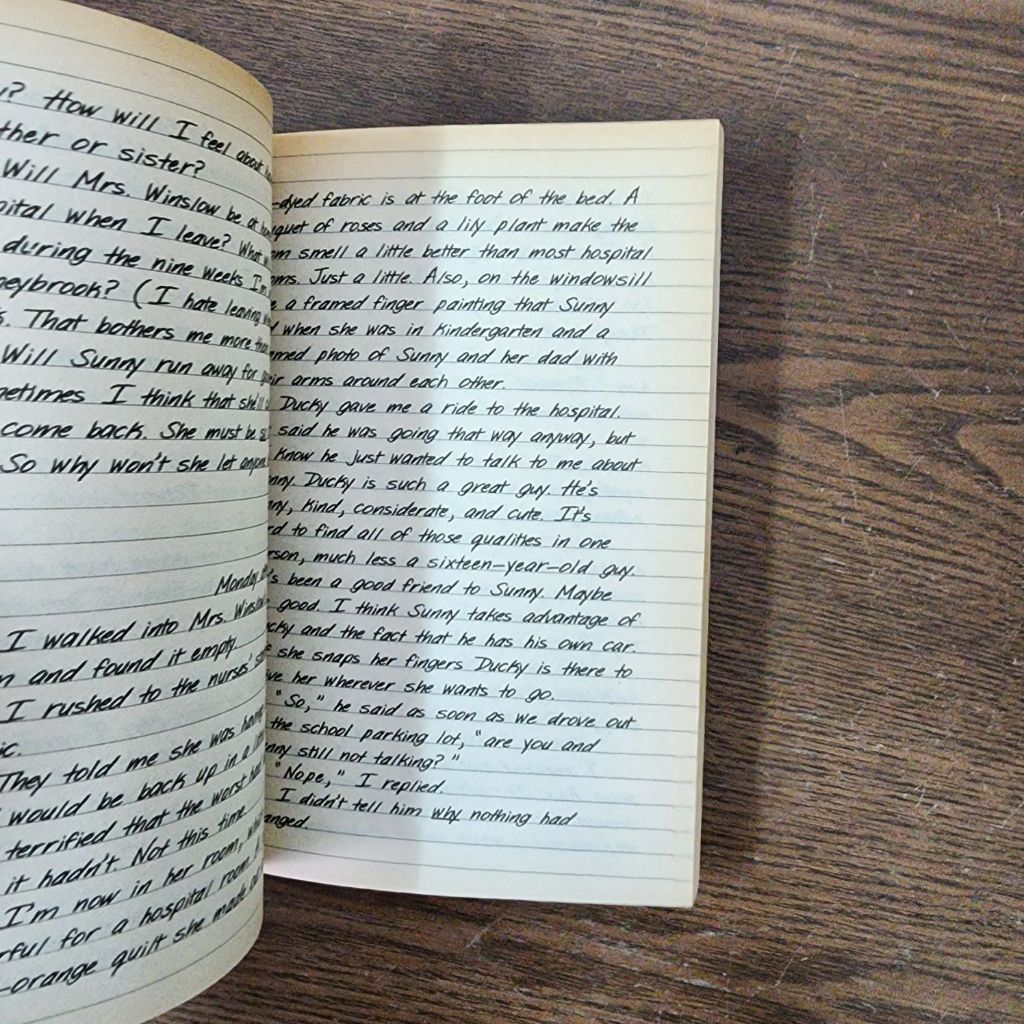 ? How will I feel about
ther or sister?
Will Mrs. Winslow be at
pital when I leave? What
during the nine weeks I'm
neybrook? (I hate leaving
That bothers me more than
Will Sunny run away for
metimes I think that she'll
come back. She must be
So why won't she let
Monday
I walked into Mrs. Winslow
and found it empty.
I rushed to the nurses'
ic.
They told me she was having
would be back up in a
terrified that the worst had
it hadn't. Not this time.
I'm now in her room,
rful for a hospital room. A
-orange quilt she made
-dyed fabric is at the foot of the bed. A
quet of roses and a lily plant make the
om smell a little better than most hospital
oms. Just a little. Also, on the windowsill
e a framed finger painting that Sunny
when she was in kindergarten and a
amed photo of Sunny and her dad with
eir arms around each other.
Ducky gave me a ride to the hospital.
said he was going that way anyway, but
know he just wanted to talk to me about
nny. Ducky is such a great guy. He's
nny, kind, considerate, and cute. It's
rd to find all of those qualities in one
rson, much less a sixteen-year-old guy.
's been a good friend to Sunny. Maybe
good. I think Sunny takes advantage of
cky and the fact that he has his own car.
she snaps her fingers Ducky is there to
ive her wherever she wants to go.
"So," he said as soon as we drove out
the school parking lot, "are you and
nny still not talking?"
"Nope," I replied.
I didn't tell him why nothing had
anged.